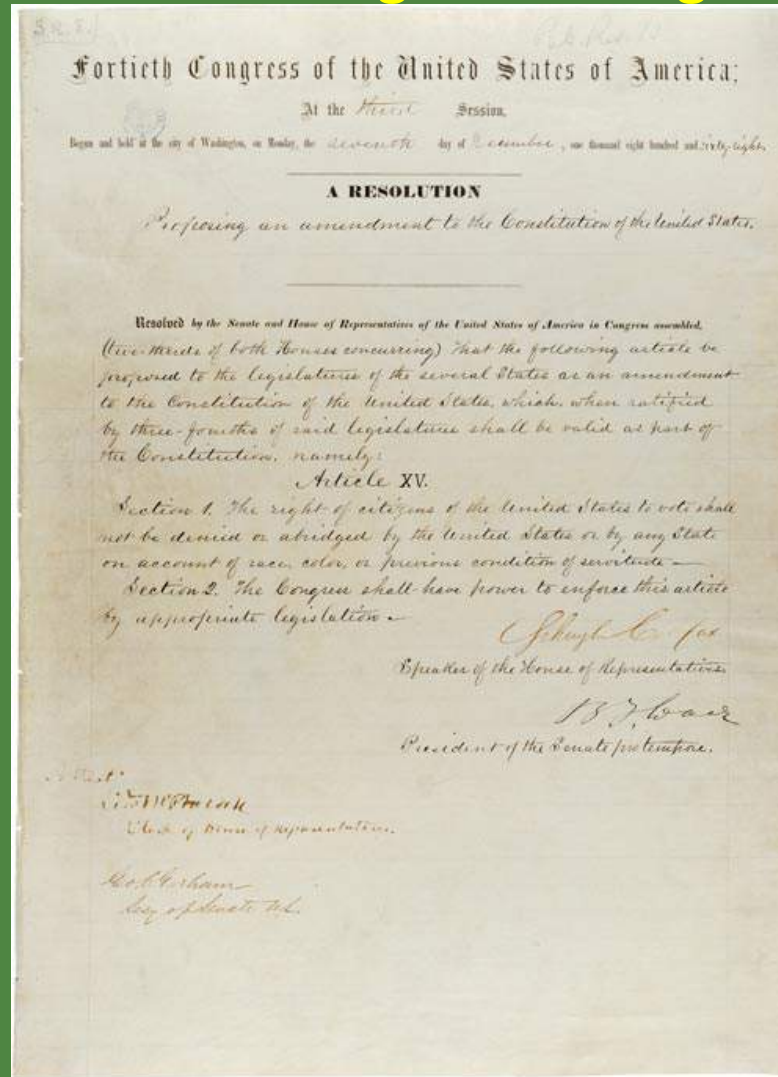 S.R. 8.
Fortieth Congress of the United States of America;
At the third Session,
Begun and held at the city of Washington, on Monday, the seventh day of December, one thousand eight hundred and sixty-eight.
A RESOLUTION
Proposing an amendment to the Constitution of the United States.
Resolved by the Senate and House of Representatives of the United States of America in Congress assembled,
(two-thirds of both Houses concurring) That the following article be
proposed to the legislatures of the several States as an amendment
to the Constitution of the United States, which, when ratified
by three-fourths of said legislatures shall be valid as part of
the Constitution, namely:
Article XV.
Section 1. The right of citizens of the United States to vote shall
not be denied or abridged by the United States or by any State
on account of race, color, or previous condition of servitude—
Section 2. The Congress shall have power to enforce this article
by appropriate legislation—
Schuyler Colfax
Speaker of the House of Representatives.
B F Wade
President of the Senate pro tempore.
Attest
Clerk of House of Representatives.
Geo C Gorham
Secy of Senate U.S.